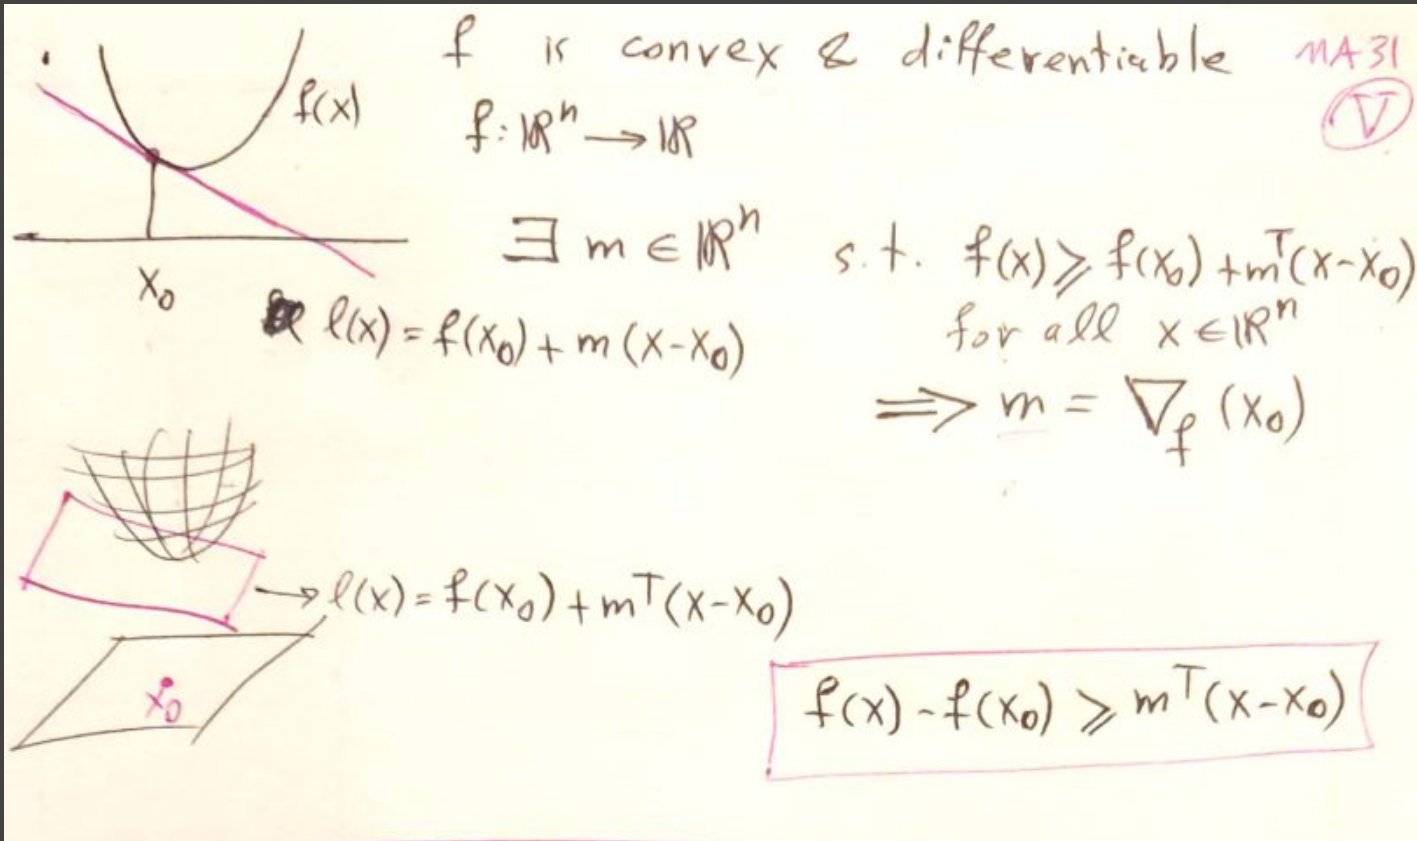 f is convex & differentiable MA31
V
f(x)
f: ℝⁿ → ℝ
∃ m ∈ ℝⁿ s.t. f(x) ≥ f(x₀) + mᵀ(x-x₀)
for all x ∈ ℝⁿ
x₀
l(x) = f(x₀) + m (x-x₀)
⟹ m = ∇f (x₀)
→ l(x) = f(x₀) + mᵀ(x-x₀)
x₀
f(x) - f(x₀) ≥ mᵀ(x-x₀)